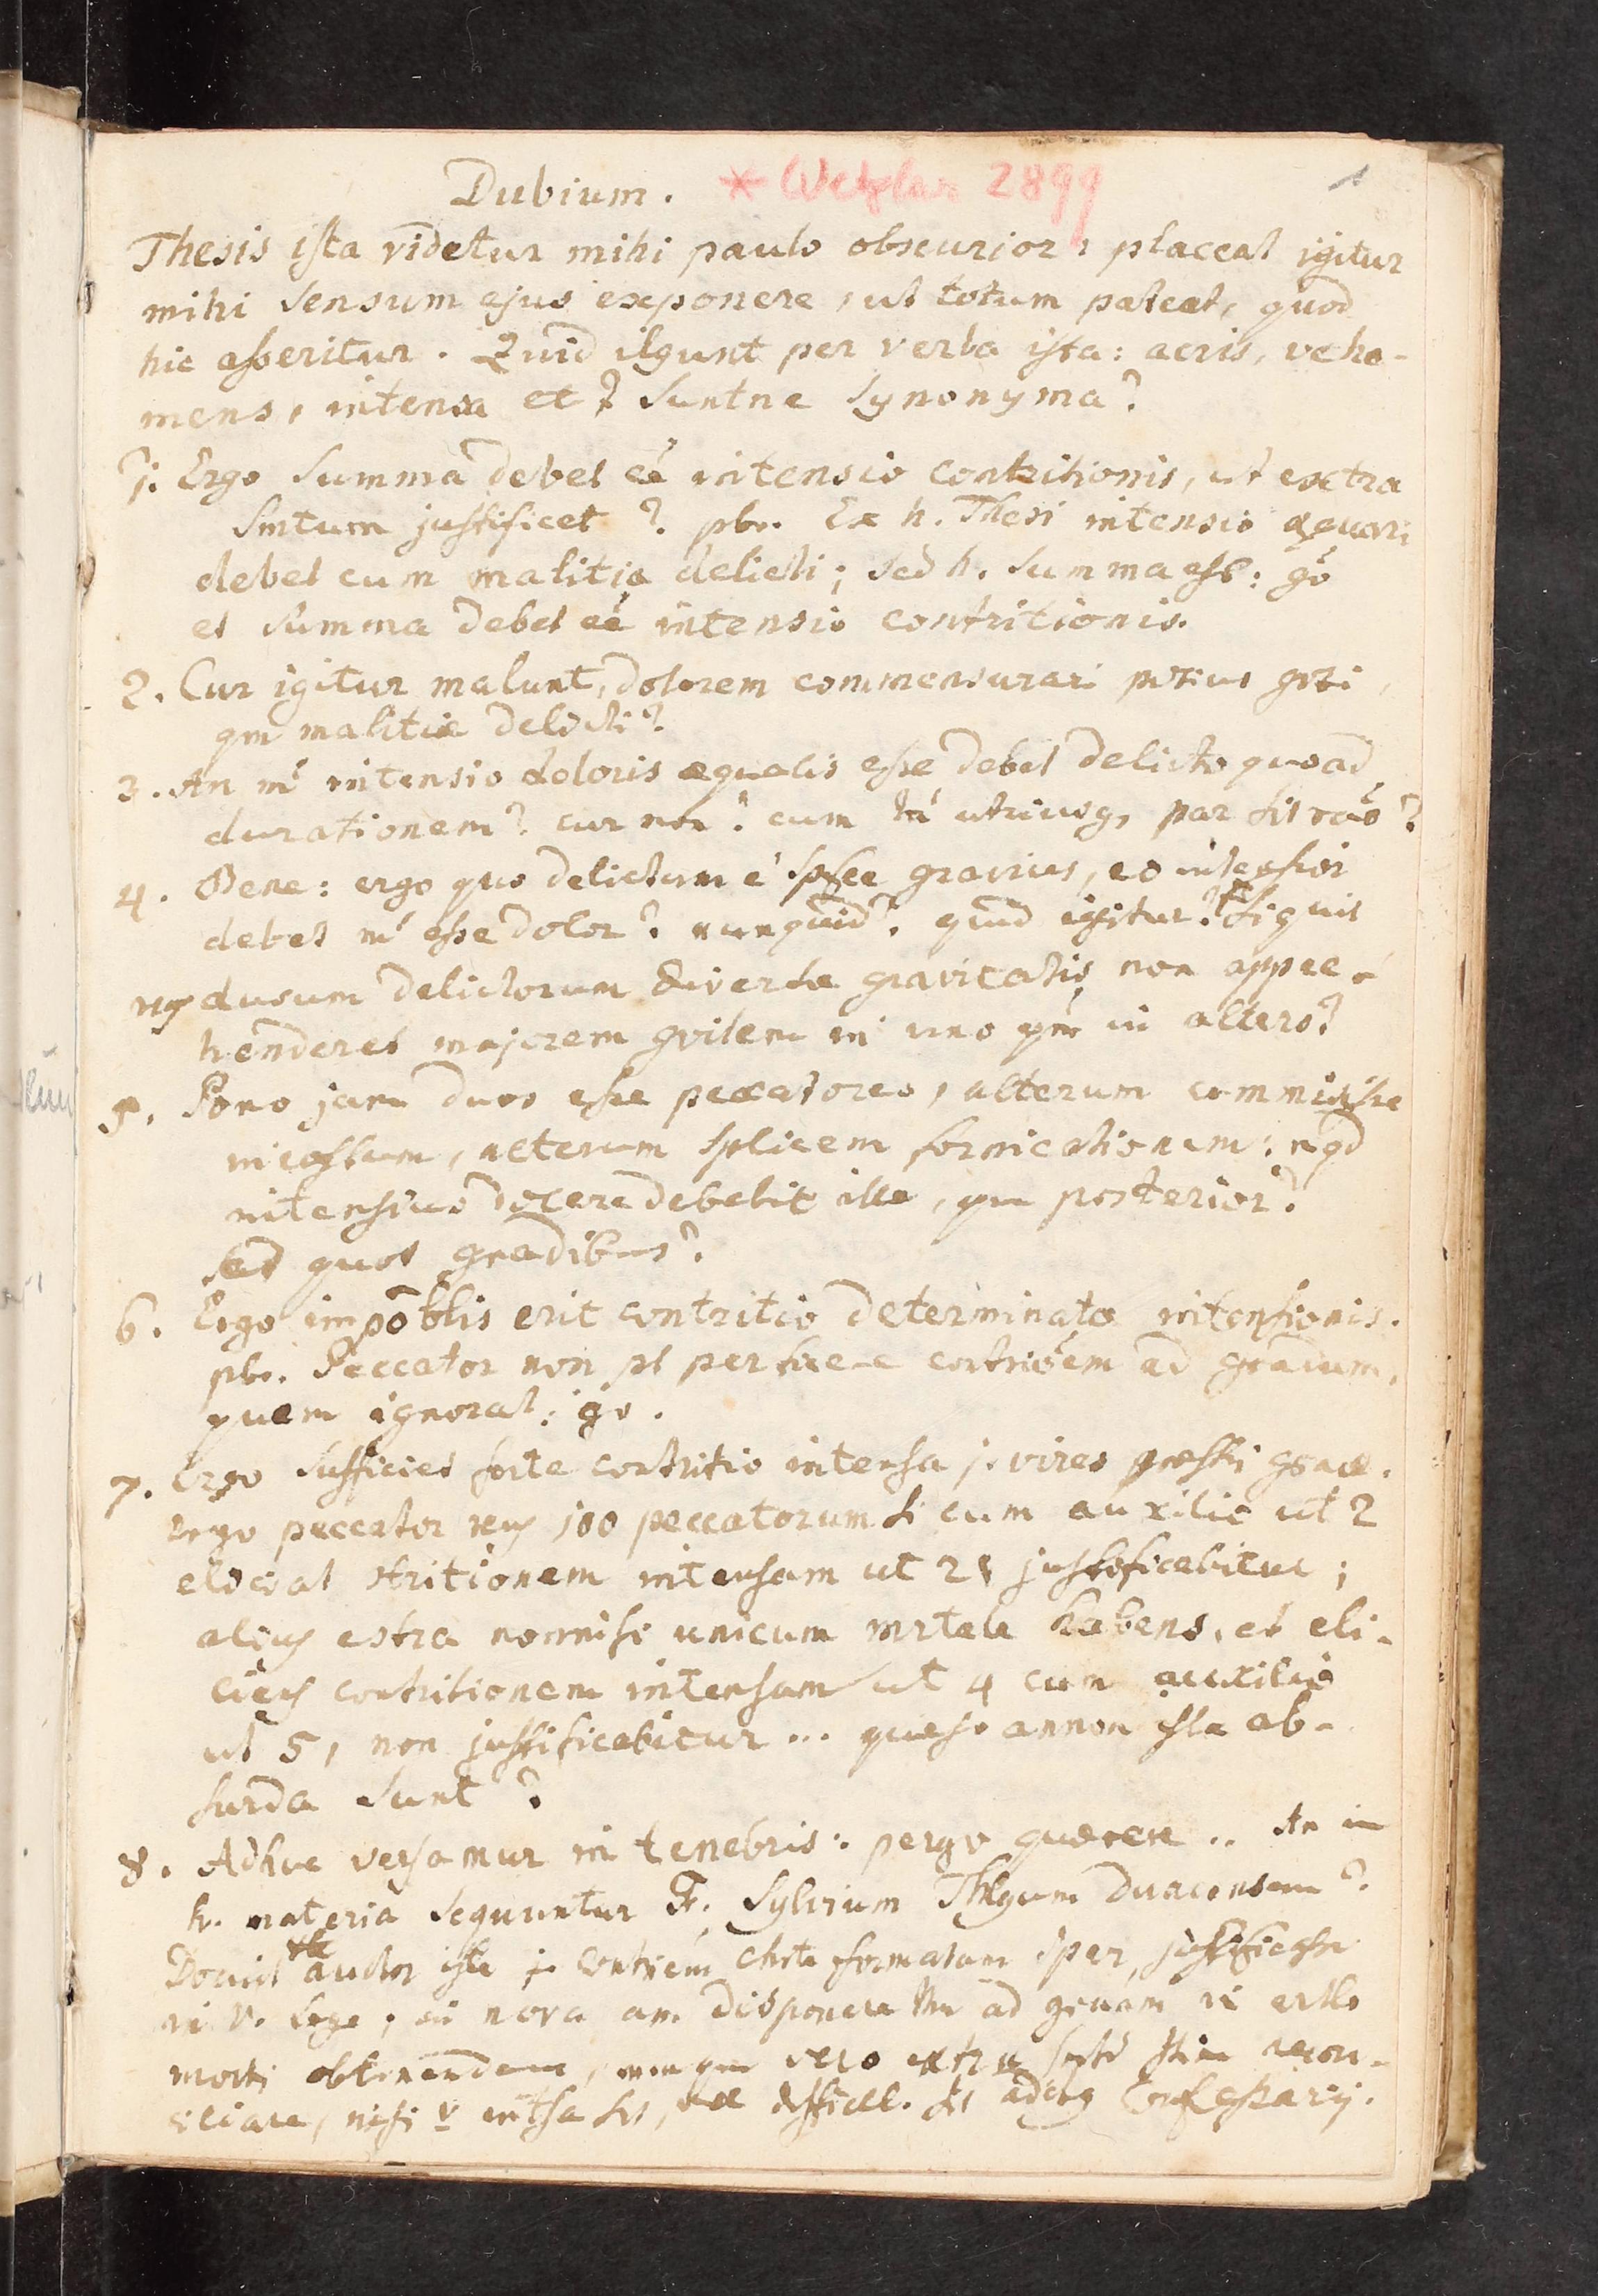 Dubium. * Wetzlar 2899 1
Thesis ista videtur mihi paulo obscurior, placeat igitur
mihi sensum ejus exponere, ut totum pateat, quod
hic asseritur. Quid per verba ista: acris, vehe-
mens, intensa et? suntne synonyma?
1. Ergo summa debet eē intensio contritionis, ut extra
Smtum justificet? pbr. Ex h. Thesi intensio æquari
debet cum malitia delicti; sed h. summa est: gō
et summa debet eē intensio contritionis.
2. Cur igitur malunt, dolorem commensurari potius
qm malitiæ delicti?
3. An intensio doloris æqualis esse debet delicto quoad
durationem? cur non? cum utriusq, par sit
4. Bene: ergo quo delictum ē gravius, eo intensior
debet esse dolor? nunquid? quid igitur? si quis
reus duorum delictorum diversæ gravitatis non appre-
henderet majorem in uno qm in altero?
5. Pono jam duos esse peccatores, alterum commisisse
incestum, alterum splicem fornicationem: nqd
intensius dolere debebit ille, qm posterior?
sed quot gradibus?
6. Ergo impōblis erit contritio determinatæ intensionis.
pbr. Peccator non pt ad gradum,
quem ignorat: go.
7. Ergo sufficiet forte contritio intensa j. vires
Ergo peccator reus 100 peccatorum si cum auxilio ut 2
eliciat ctritionem intensam ut 2, justificabitur;
alius extra nonnisi unicum mrtale habens, et eli-
ciens contritionem intensam ut 4 cum auxilio
ut 5, non justificabitur... quæso annon ista ab-
surda sunt?
8. Adhuc versamur in tenebris: pergo quærere.. An in
h. materia sequuntur F. Sylvium Thlgum Duacensem?
Docuit auctor iste formatam
in v. lege, in nova am. disponere ad
mortis obtinendam, vero extra recon-
ciliare, nisi v sit, sit Confessarij.